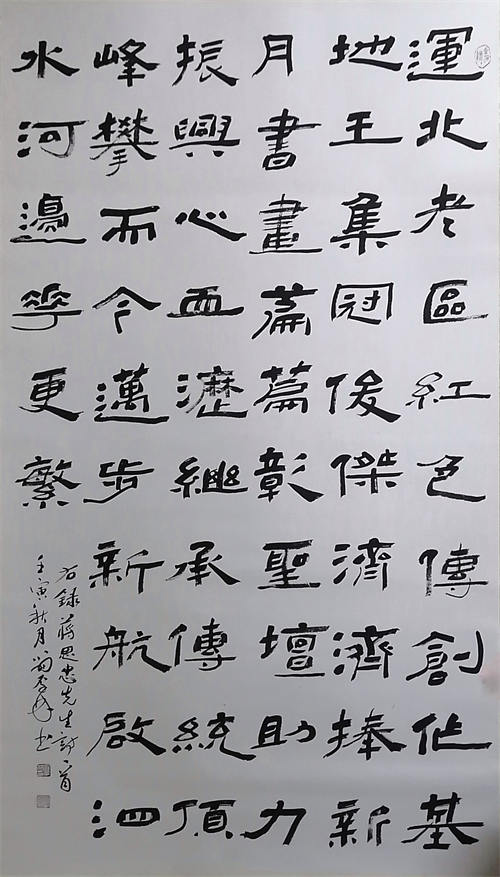 運北老區紅色傳創作基
地王集冠俊傑濟濟捧新
月書畫篇篇彰聖壇助力
振興心血瀝繼承傳統頂
峰攀而今邁步新航啟泗
水河邊華更繁
右錄蔣思忠先生詩一首
壬寅秋月 书